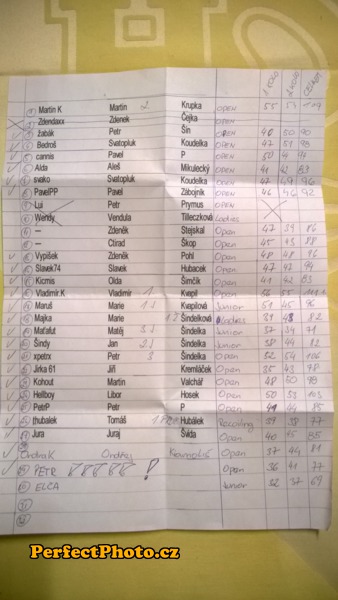 1 KOLO 2 KOLO CELKEM
Martin K Martin 2 Krupka OPEN 55 54 109
Zdendaxx Zdenek Čejka OPEN
žabák Petr Šín OPEN 40 50 90
Bedroš Svatopluk Koudelka OPEN 47 51 98
cannis Pavel P OPEN 50
Alda Aleš Mikulecký OPEN 41 42 83
svako Svatopluk Koudelka OPEN 47 49 96
PavelPP Pavel Zábojník OPEN 46 46 92
Lui Petr Prymus OPEN
Wendy Vendula Tilleczková Ladies
— Zdeněk Stejskal Open 47 39 86
— Ctirad Škop Open 45 43 88
Vypíšek Zdeněk Pohl Open 48 48 96
Slavek74 Slavek Hubacek Open 47 47 94
Kicmis Olda Šimčík Open 41 42 83
Vladimír.K Vladimír 1 Kvapil Open
Maruš Marie Kvapilová Junior 51 45 96
Majka Marie Šindelková Ladies 43 82
Maťafut Matěj Šindelka Junior 37 34 71
Šindy Jan Šindelka Junior 38 44 82
xpetrx Petr 3 Šindelka Open 52 54 106
Jirka 61 Jiří Kremláček Open 35 43 78
Kohout Martin Valchář Open 48 50 98
Hellboy Libor Hosek Open 50 53 103
PetrP Petr P Open 41 44 85
thubalek Tomáš Hubálek 39 38 77
Jura Juraj Švida Open 40 45 85
Ondrak Ondřej Open 37 44 81
PETR ! Open 36 41 77
ELČA Junior 32 37 69
31
32
PerfectPhoto.cz